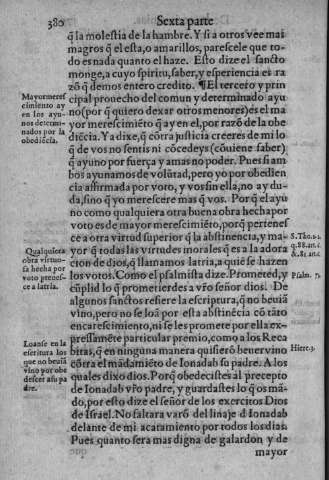 380
Sexta parte
q̃ la molestia de la hambre. Y si a otros vee mas
magros q̃ el esta, o amarillos, parescele que to-
do es nada quanto el haze. Esto dize el sancto
monge, a cuyo spiritu, saber, y esperiencia es ra
zõ q̃ demos entero credito. ¶ El tercero y prin
cipal prouecho del comun y determinado ayu
no (por q̃ quiero dexar otros menores) es el ma
yor merescimiẽto q̃ ay en el, por razõ de la obe
diẽcia. Y a dixe, q̃ cõtra justicia creeres de mi lo
q̃ de vos no sentis ni cõcedeys (cõuiene saber)
q̃ ayuno por fuerça y amas no poder. Pues si am
bos ayunamos de volũtad, pero yo por obedien
cia affirmada por voto, y vos sin ella, no ay du-
da, sino q̃ yo merescere mas q̃ vos. Por q̃ el ayu
no como qualquiera otra buena obra hecha por
voto es de mayor merescimiẽto, porq̃ pertenes
ce a otra virtud superior q̃ la abstinencia, y ma-
yor q̃ todas las virtudes morales q̃ es a la adora
cion de dios, q̃ llamamos latria, a quiẽ se hazen
los votos. Como el psalmista dize. Prometed, y
cũplid lo q̃ prometierdes a vr̃o señor dios. De
algunos sanctos refiere la escriptura, q̃ no beuiã
vino, pero no se loã por esta abstinẽcia cõ tãto
encarescimiento, ni se les promete por ella ex-
pressamẽte particular premio, como a los Reca
bitas, q̃ en ninguna manera quisierõ beuer vino
cõtra el mãdamiẽto de Ionadab su padre. A los
quales dixo dios. Porq̃ obedecistes al precepto
de Ionadab vr̃o padre, y guardastes lo q̃ os mã-
dó, por esto dize el señor de los exercitos Dios
de Israel. No faltara varõ del linaje d̃ Ionadab
delante de mi acatamiento por todos los dias.
Pues quanto sera mas digna de galardon y de
mayor
Mayor meres
cimiento ay
en los ayu-
nos determi-
nados por la
obediẽcia.
Qualquiera
obra virtuo-
sa hecha por
voto pertenes-
ce a latria.
Loanse en la
escritura los
que no beuiã
vino por obe
descer a su pa
dre.
S. Tho. 2.2.
q. 88. ar. 6.
Psalm. 75.
Hiere.3.